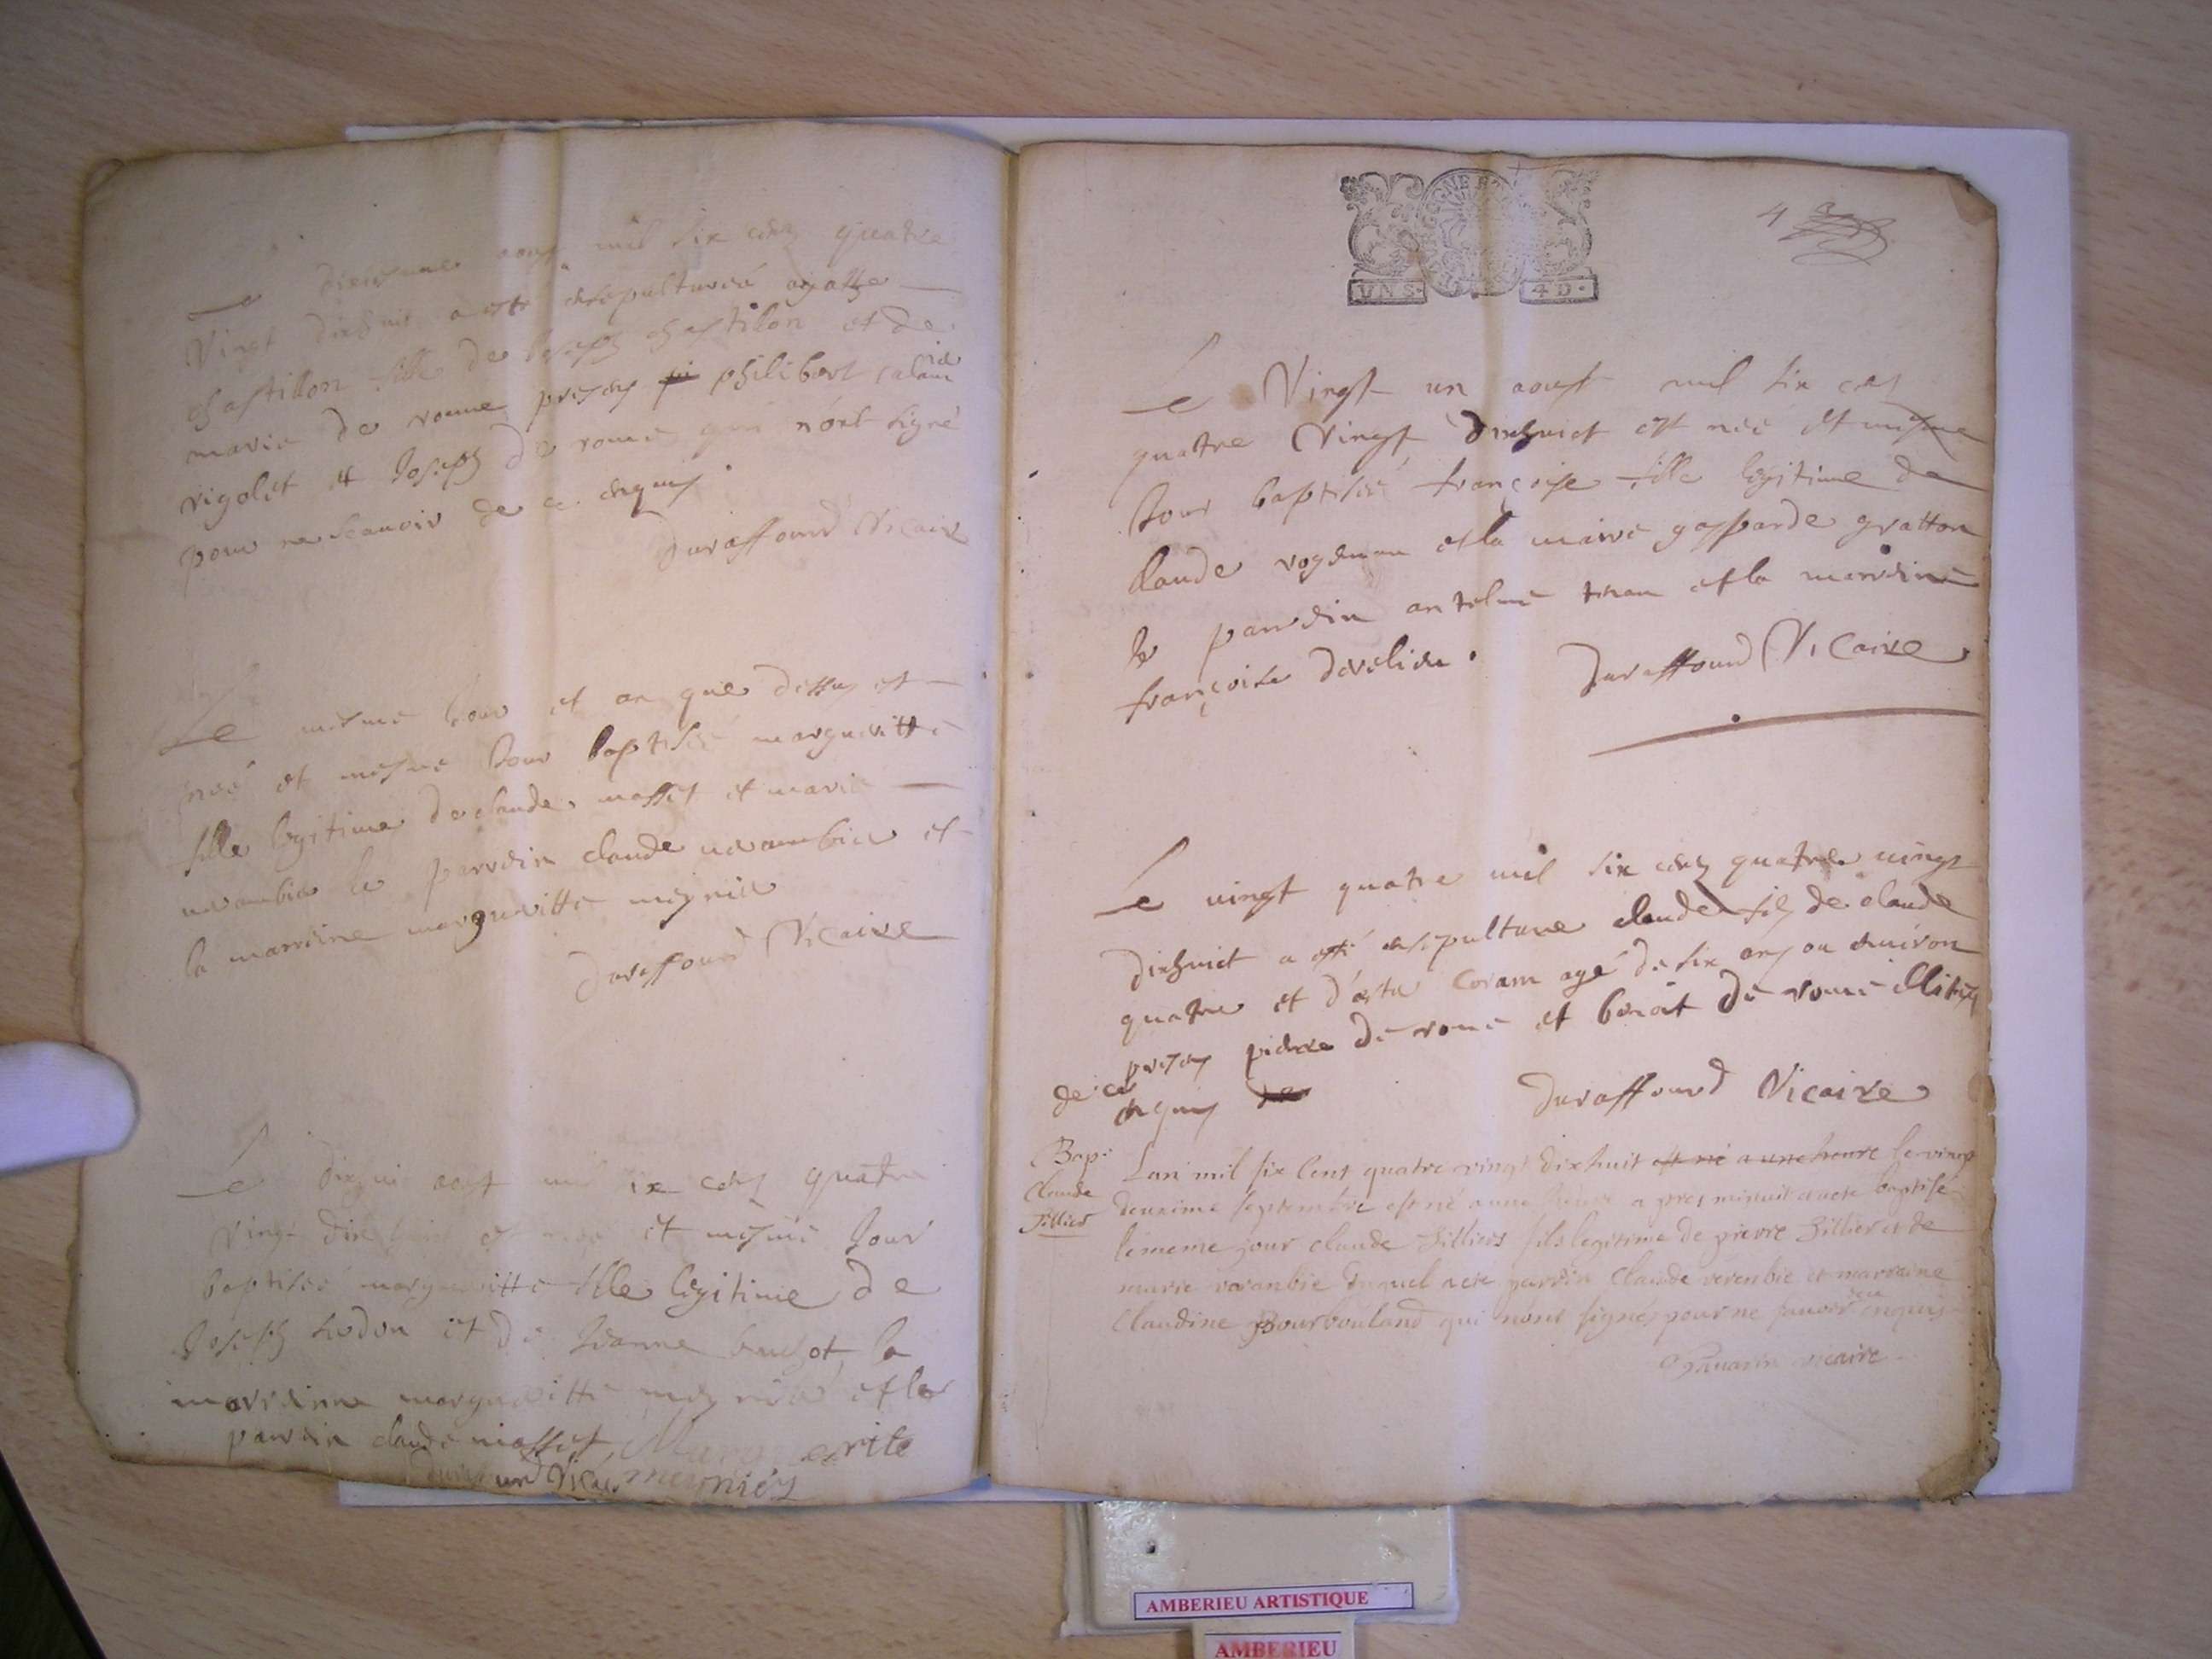 Le dixiesme aoust mil six cens quatre
Vingt dixhuit a esté ensepulturéé agathe
chastillon fille de Joseph chastillon et de
marie de roume presens philibert
rigolet et Joseph de roume qui n'ont signé
pour ne scauoir de ce enquis
Duraffourd Vicaire
Le mesme Jour et an que dessus est
néé et mesme Jour baptiséé margueritte
fille legitime de claude masset et marie
uerambier le parrein claude uerambier et
la marreine margueritte meynier
Duraffourd Vicaire
Le aoust mil six cens quatre
Vingt dix huit est néé et mesme Jour
baptiséé margueritte fille legitime de
Joseph et de Jeanne la
marreine margueritte meynier et le
parrein claude masset Marguerite
Duraffourd Vicaire meynier
4
VN S. 4 D.
Le Vingt un aoust mil six cens
quatre Vingt dixhuict est néé et mesme
Jour baptiséé françoise fille legitime de
Claude et la maire gasparde gratton
le parrein antelme et la marreine
françoise
Duraffourd Vicaire
Le uingt quatre mil six cens quatre uingt
dixhuict a esté ensepulture claude fils de claude
quatre et d'este agé de six ans ou enuiron
presens pierre de roume et benoit de roume illiterez
de ce
enquis
Duraffourd Vicaire
Bap:
Claude
Tillier
Lan mil six cent quatre vingt dixhuit est né a une heure le vingt
deuxime septembre est né a une heure apres minuit a eté baptisé
le meme jour claude Tillier fils legitime de pierre Tillier et de
marie verambie duquel a été parrin Claude verembie et marraine
Claudine Bourbouland qui n'ont signés pour ne savoir enquis
vicaire
AMBERIEU ARTISTIQUE
AMBERIEU